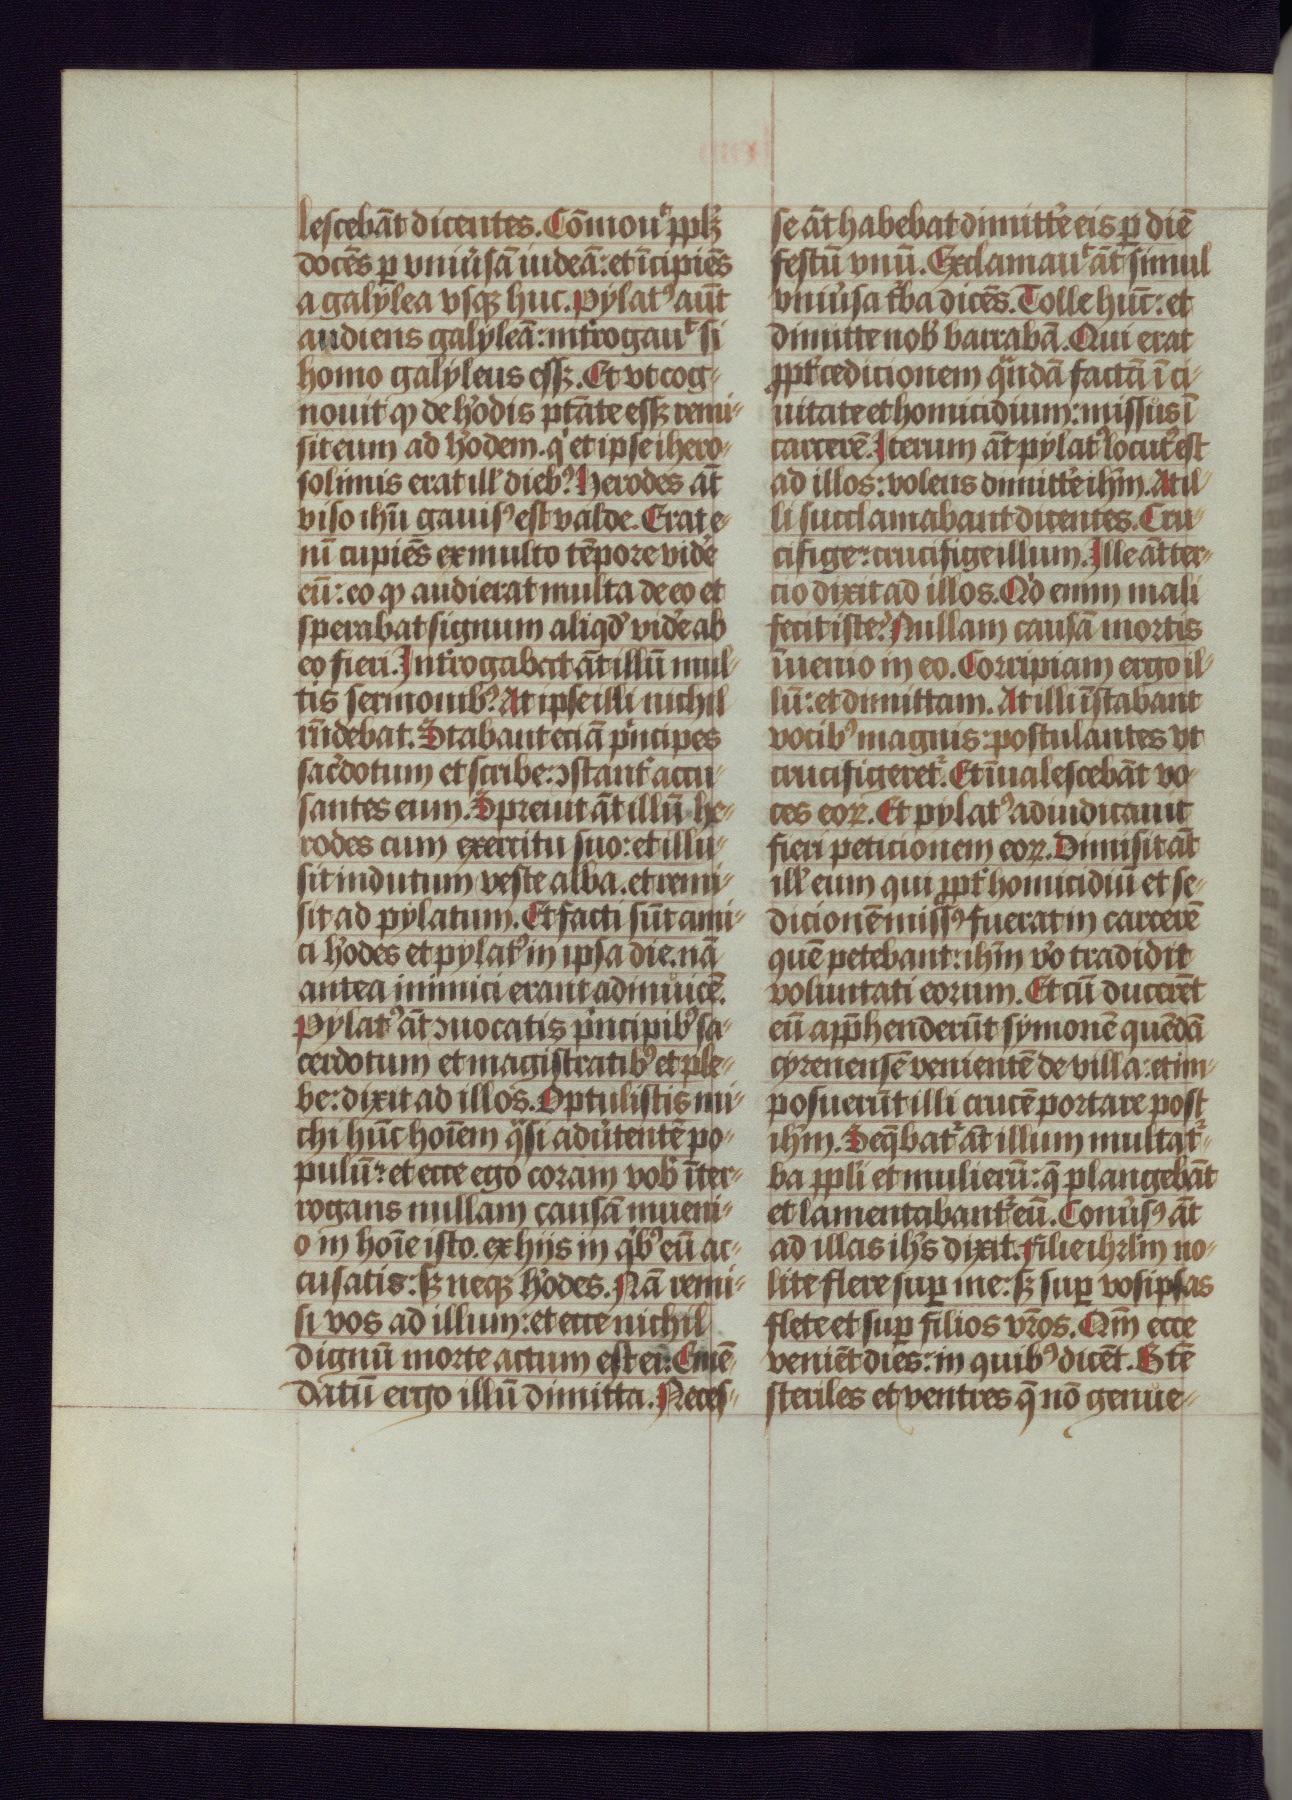 lescebāt dicentes. Cōmouͭ pplꝫ
docēs ꝑ vniu̓sā iudeā: et īcipiēs
a galylea vsqꝫ huc. Pylatꝰ aūt
audiens galyleā: int̓rogauͭ si
homo galyleus essꝫ. Et vt cog⸗
nouit ꝙ de h̓odis ptāte essꝫ remi⸗
sit eum ad h̓odem. qͥ et ipse ihero⸗
solimis erat ill̓ diebꝰ. Herodes āt
viso ihū gauisꝰ est valde. Erat e⸗
nī cupiēs ex multo tēpore vide̓
eū: eo ꝙ audierat multa de eo et
sperabat signum aliqd̓ vide̓ ab
eo fieri. Int̓rogabat āt illū mul⸗
tis sermonibꝰ. At ipse illi nichil
rn̄debat. Stabant eciā pͥncipes
sac̓dotum et scribe: ꝯstant̓ accu⸗
santes eum. Spreuit āt illū he⸗
rodes cum exercitu suo: et illu⸗
sit indutum veste alba. et remi⸗
sit ad pylatum. Et facti sūt ami⸗
ci h̓odes et pylatꝰ in ipsa die. nā
antea inimici erant adinuicē.
Pylatꝰ āt ꝯuocatis pͥncipibꝰ sa⸗
cerdotum et magistratibꝰ et ple⸗
be: dixit ad illos. Optulistis mi⸗
chi hūc hoīem qͣsi adu̓tentē po⸗
pulū: et ecce ego coram vob̓ īter⸗
rogans nullam causā inueni⸗
o in hoīe isto. ex hiis in qͥbꝰ eū ac⸗
cusatis: sꝫ neqꝫ h̓odes. Nā remi⸗
si vos ad illum: et ecce nichil
dignū morte actum est ei. Emē⸗
datū ergo illū dimitta. Neces⸗
se āt habebat dimitte̓ eis ꝑ diē
festū vnū. Exclamauͭ āt simul
vniu̓sa t̓ba dicēs. Tolle hūc: et
dimitte nob̓ barrabā. Qui erat
ꝓpt̓ cedicionem qͣndā factā ī ci⸗
uitate et homicidium: missus ī
carcerē. Iterum āt pylatꝰ locutꝰ est
ad illos: volens dimitte̓ ihm̄. At il⸗
li succlamabant dicentes. Cru⸗
cifige: crucifige illum. Ille āt ter⸗
cio dixit ad illos. Qd̓ enim mali
fecit iste? Nullam causā mortis
īuenio in eo. Corripiam ergo il⸗
lū: et dimittam. At illi īstabant
vocibꝰ magnis: postulantes vt
crucifigeretᷣ. Et īualescebāt vo⸗
ces eoꝝ. Et pylatꝰ adiudicauit
fieri peticionem eoꝝ. Dimisit āt
ill̓ eum qui ꝓpt̓ homicidiū et se⸗
dicionē missꝰ fuerat in carcerē
quē petebant: ihm̄ vo̓ tradidit
voluntati eorum. Et cū ducerēt
eū app̄henderūt symonē quēdā
cyrenensē venientē de villa: et im⸗
posuerūt illi crucē portare post
ihm̄. Seq̄batᷣ āt illum multa tᷣ⸗
ba ppl̓i et mulierū: q̄ plangebāt
et lamentabant̓ eū. Conu̓sꝰ āt
ad illas ihs̄ dixit. Filie ihrl̄m no⸗
lite flere suꝑ me: sꝫ suꝑ vosipsas
flete et suꝑ filios vr̄os. Qm̄ ecce
veniēt dies: in quibꝰ dicēt. Btē
steriles et ventres q̄ nō genue⸗